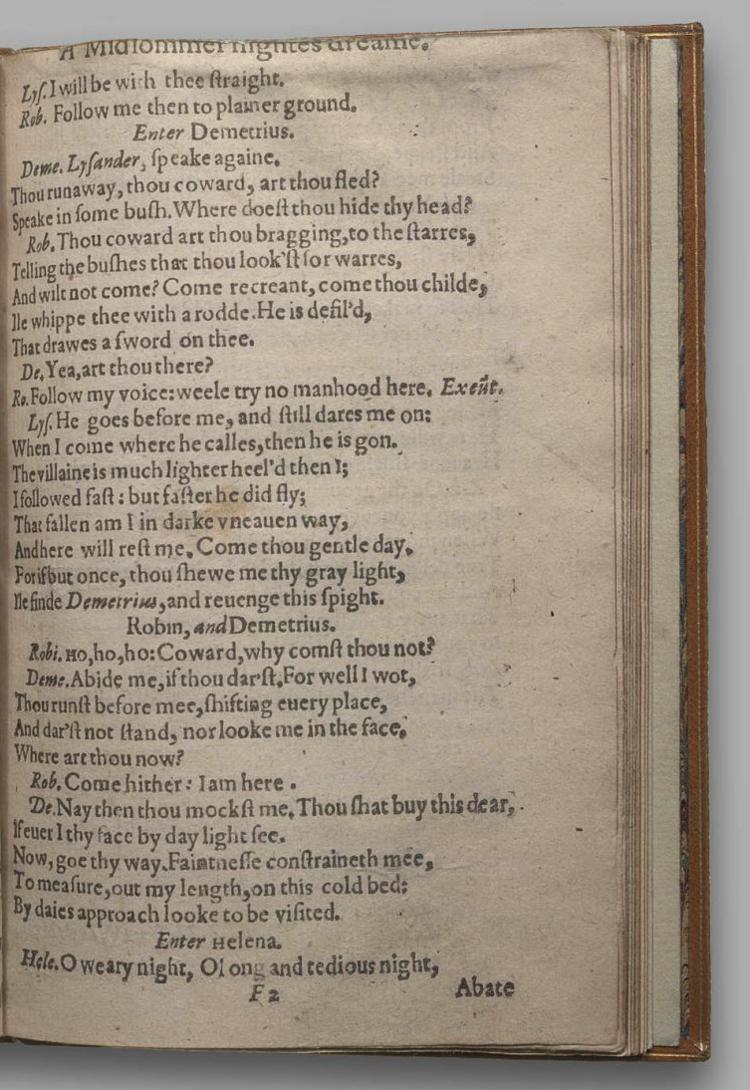 A Midsommer nightes dreame.
Lyſ. I will be with thee ſtraight.
Rob. Follow me then to plainer ground.
Enter Demetrius.
Deme. Lyſander, ſpeake againe.
Thou runaway, thou coward, art thou fled?
Speake in ſome buſh. Where doeſt thou hide thy head?
Rob. Thou coward art thou bragging, to the ſtarres,
Telling the buſhes that thou look'ſt for warres,
And wilt not come? Come recreant, come thou childe,
Ile whippe thee with a rodde. He is defil'd,
That drawes a ſword on thee.
De. Yea, art thou there?
Ro. Follow my voice: weele try no manhood here. Exeūt.
Lyſ. He goes before me, and ſtill dares me on:
When I come where he calles, then he is gon.
The villaine is much lighter heel'd then I;
I followed faſt: but faſter he did fly;
That fallen am I in darke vneauen way,
And here will reſt me. Come thou gentle day,
For if but once, thou ſhewe me thy gray light,
Ile finde Demetrius, and reuenge this ſpight.
Robin, and Demetrius.
Robi. Ho, ho, ho: Coward, why comſt thou not?
Deme. Abide me, if thou dar'ſt. For well I wot,
Thou runſt before mee, ſhifting euery place,
And dar'ſt not ſtand, nor looke me in the face.
Where art thou now?
Rob. Come hither: I am here.
De. Nay then thou mockſt me. Thou ſhat buy this dear,
If euer I thy face by day light ſee.
Now, goe thy way. Faintneſſe conſtraineth mee,
To meaſure, out my length, on this cold bed:
By daies approach looke to be viſited.
Enter Helena.
Hele. O weary night, O long and tedious night,
F2 Abate